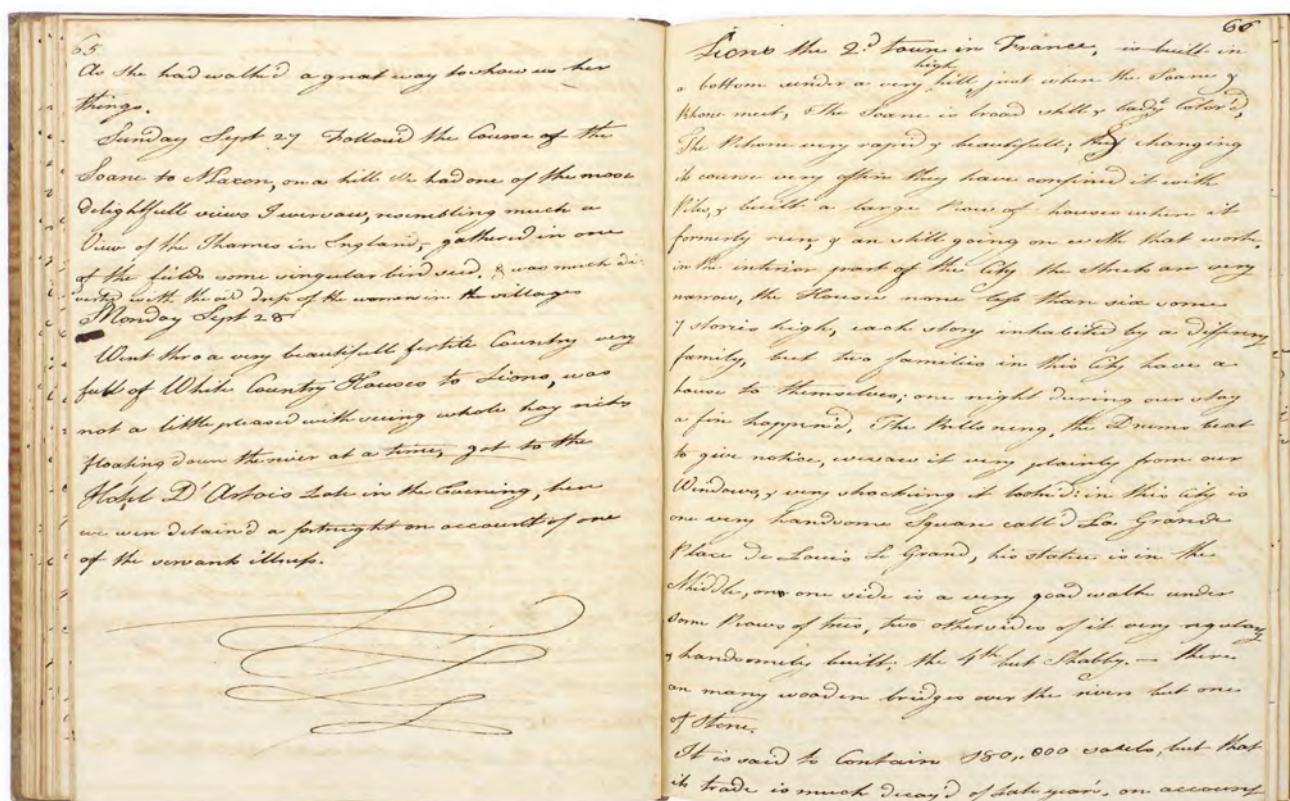 65
As she had walk'd a great way to show us her
things.
Sunday Sept 27 Follow'd the Course of the
Soane to Macon, on a hill We had one of the most
delightfull views I ever saw, resembling much a
View of the Thames in England, gathered in one
of the fields some singular bird seed. & was much di-
verted with the odd dress of the women in the villages
Monday Sept 28
Went thro a very beautifull fertile Country very
full of White Country Houses to Lions, was
not a little pleased with seeing whole hay ricks
floating down the river at a time, got to the
Hotel D'Artois Late in the Evening, here
we were detain'd a fortnight on account of one
of the servants illness.
66
Lions the 2.d town in France, is built in
a bottom under a very high hill, just where the Soane &
Rhone meet, The Soane is broad still & badly Color'd,
The Rhone very rapid & beautifull; changing
its course very often they have confined it with
Piles, & built a large Row of houses where it
formerly run, & are still going on with that work.
in the interior part of the City the streets are very
narrow, the Houses none less than six some
7 stories high, each story inhabited by a different
family, but two families in this City have a
house to themselves; one night during our stay
a fire happen'd, The Bells ring, the Drums beat
to give notice, we saw it very plainly from our
Windows, & very shocking it look'd: in this City is
one very handsome Square call'd La Grande
Place de Louis Le Grand, his statue is in the
Middle, on one side is a very good walk under
some Rows of trees, two other sides of it very regularly
& handsomely built; the 4th but Shabby. — there
are many wooden bridges over the rivers but one
of Stone.
It is said to Contain 180,,000 but that
its trade is much decay'd of late years, on account